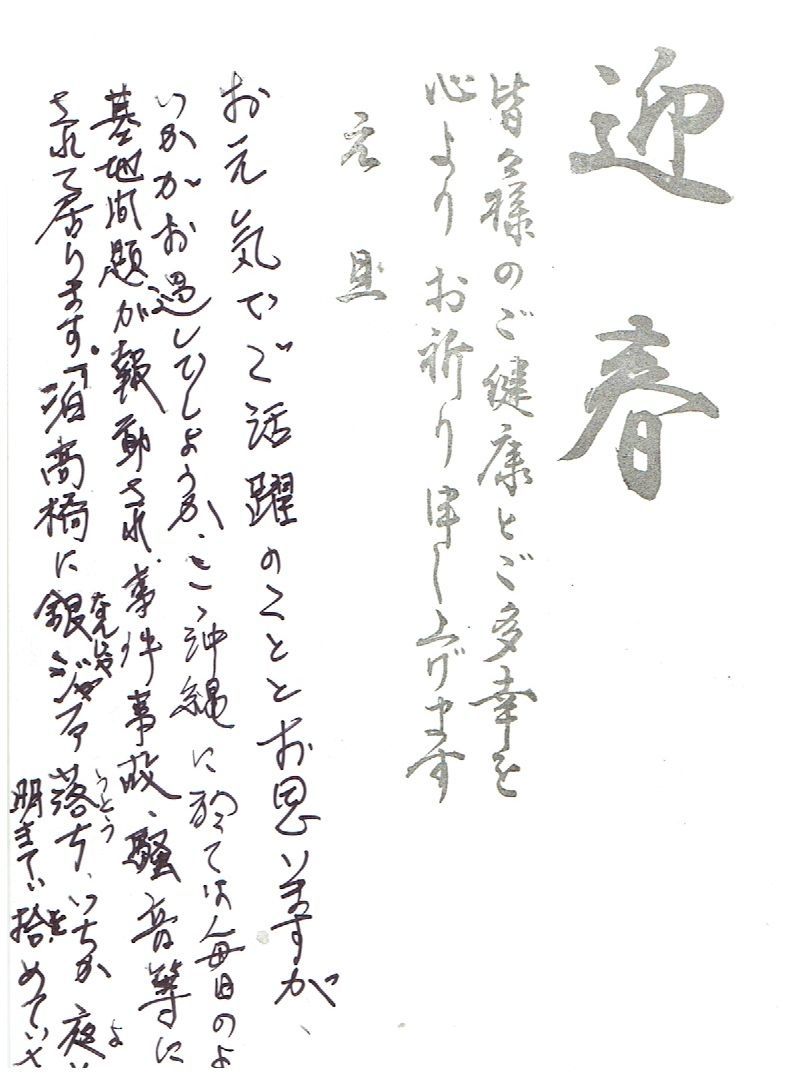 迎春
皆々様のご健康とご多幸を
心よりお祈り申し上げます
元旦
お元気でご活躍のことゝお思いますが、
いかがお過しでしようか、こゝ沖縄に於ては毎日のよ
基地問題が報動され事件事故、騒音等に
され居ります。「泊高橋に銀ジファ落ち、いちか夜
なんじゃ
うとぅ
ゆ
明きてぃ 拾めてぃ